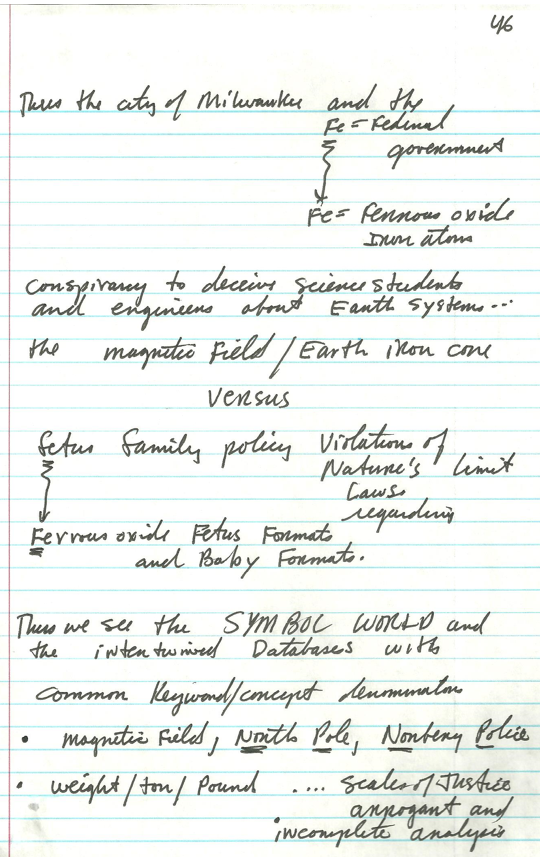 46
Thus the city of Milwaukee and the
Fe = Federal
government
Fe = Ferrous oxide
Iron atoms
conspiracy to deceive science students
and engineers about Earth systems...
the magnetic Field / Earth iron core
VERSUS
fetus family policy Violations of
Nature's limit
Laws
regarding
Ferrous oxide Fetus Formats
and Baby Formats.
Thus we see the SYMBOL WORLD and
the intentwined Databases with
common Keyword/concept denominators
• magnetic Field, North Pole, Norbery Police
• weight / ton / Pound .... Scales of Justice
arrogant and
incomplete analysis